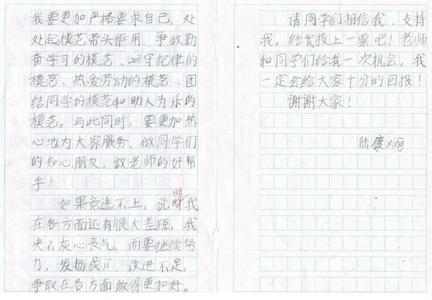 我要更加严格要求自己，处
处起模范带头作用。争做勤
奋学习的模范、遵守纪律的
模范、热爱劳动的模范、团
结同学的模范和助人为乐的
模范。与此同时，要更加热
心地为大家服务，做同学们
的知心朋友，做老师的好帮
手！
如果竞选不上，说明我
在各方面还有很大差距，我
决不灰心丧气，而要继续努
力，发扬成绩，改进不足，
争取在各方面做得更加好。
请同学们相信我、支持
我，给我投上一票吧！老师
和同学们给我一次机会，我
一定会给大家十分的回报！
谢谢大家！
陆康